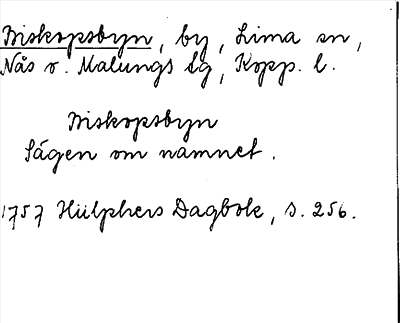 Biskopsbyn, by, Lima sn,
Nås o. Malungs dg, Kopp. l.
Biskopsbyn
Sägen om namnet.
1757 Hülphers Dagbok, s. 256.